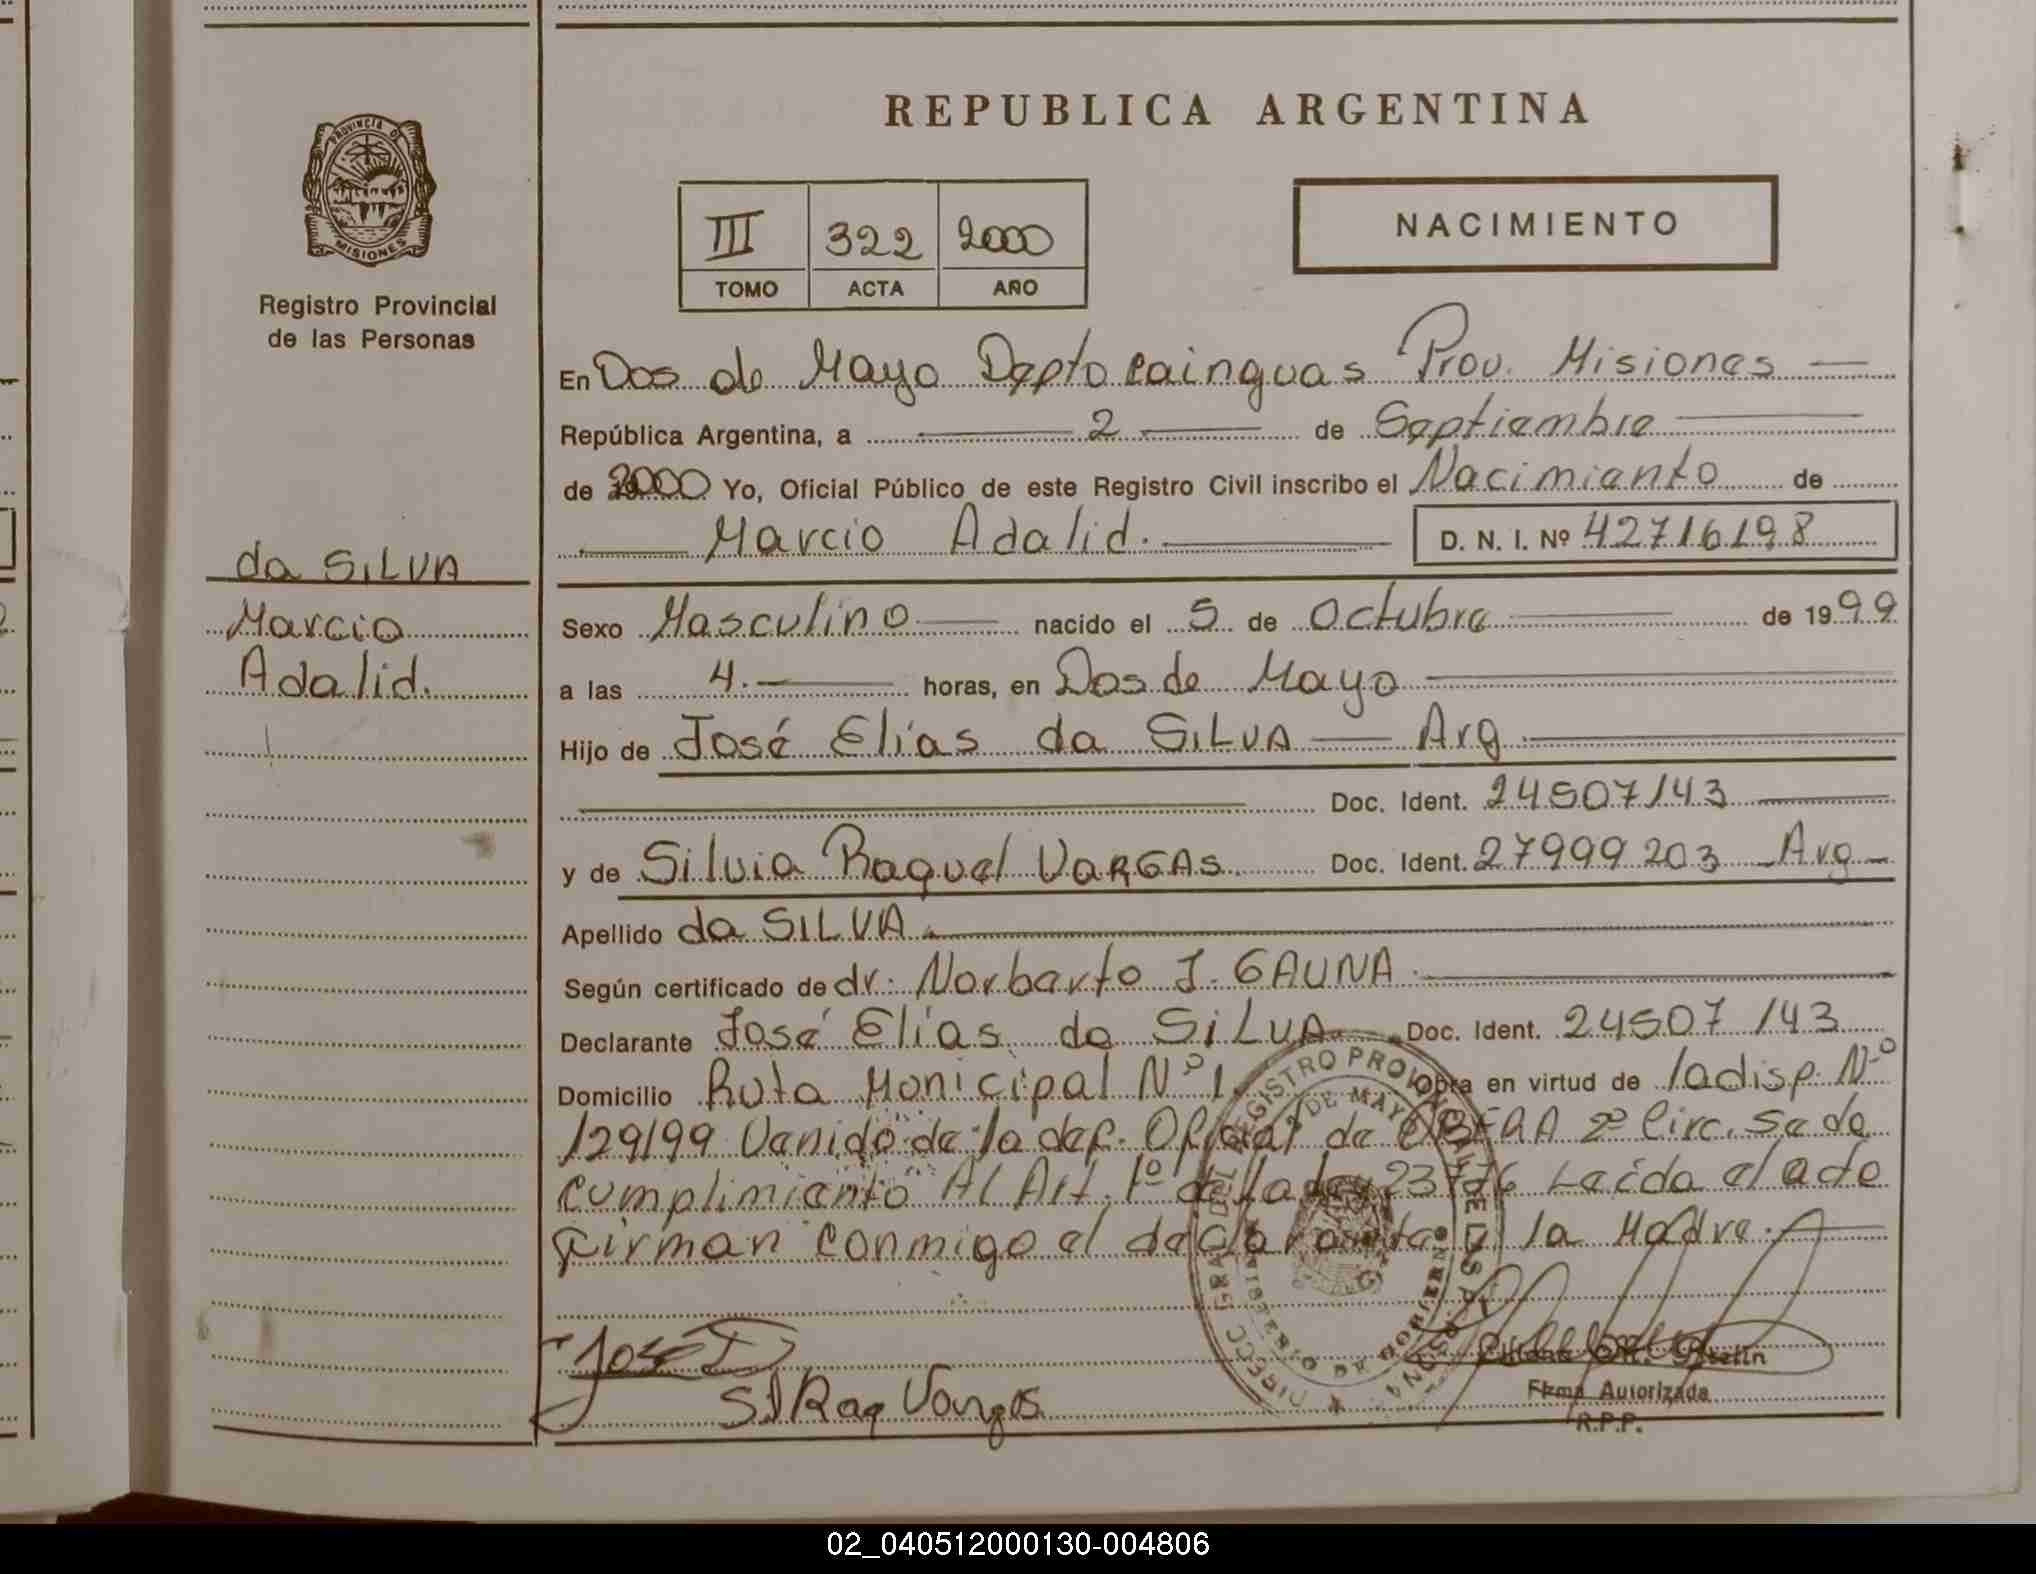 REPUBLICA ARGENTINA
PROVINCIA DE
MISIONES
Registro Provincial
de las Personas
III 322 2000
TOMO ACTA AÑO
NACIMIENTO
En Dos de Mayo Depto Cainguas Prov. Misiones
República Argentina, a 2 de Septiembre
de 2000 Yo, Oficial Público de este Registro Civil inscribo el Nacimiento de
Marcio Adalid. D. N. I. Nº 42716198
da SILVA
Marcio
Adalid.
Sexo Masculino nacido el 5 de Octubre de 1999
a las 4. horas, en Dos de Mayo
Hijo de José Elías da SILVA Arg
Doc. Ident. 24507143
y de Silvia Raquel VARGAS. Doc. Ident. 27999203 Arg
Apellido da SILVA
Según certificado de dr. Norberto J. GAUNA
Declarante José Elías da SILVA Doc. Ident. 24507143
Domicilio Ruta Municipal Nº 1. Obra en virtud de la disp. Nº
129/99 Venido de la def. Oficial de OBERA 2º Circ. Se da
cumplimiento Al Art. 1º de la ley 23776 Leída el acta
firman conmigo el declarante y la Madre.
José
Sil Raq Vargas
Firma Autorizada
R.P.P.
02_040512000130-004806